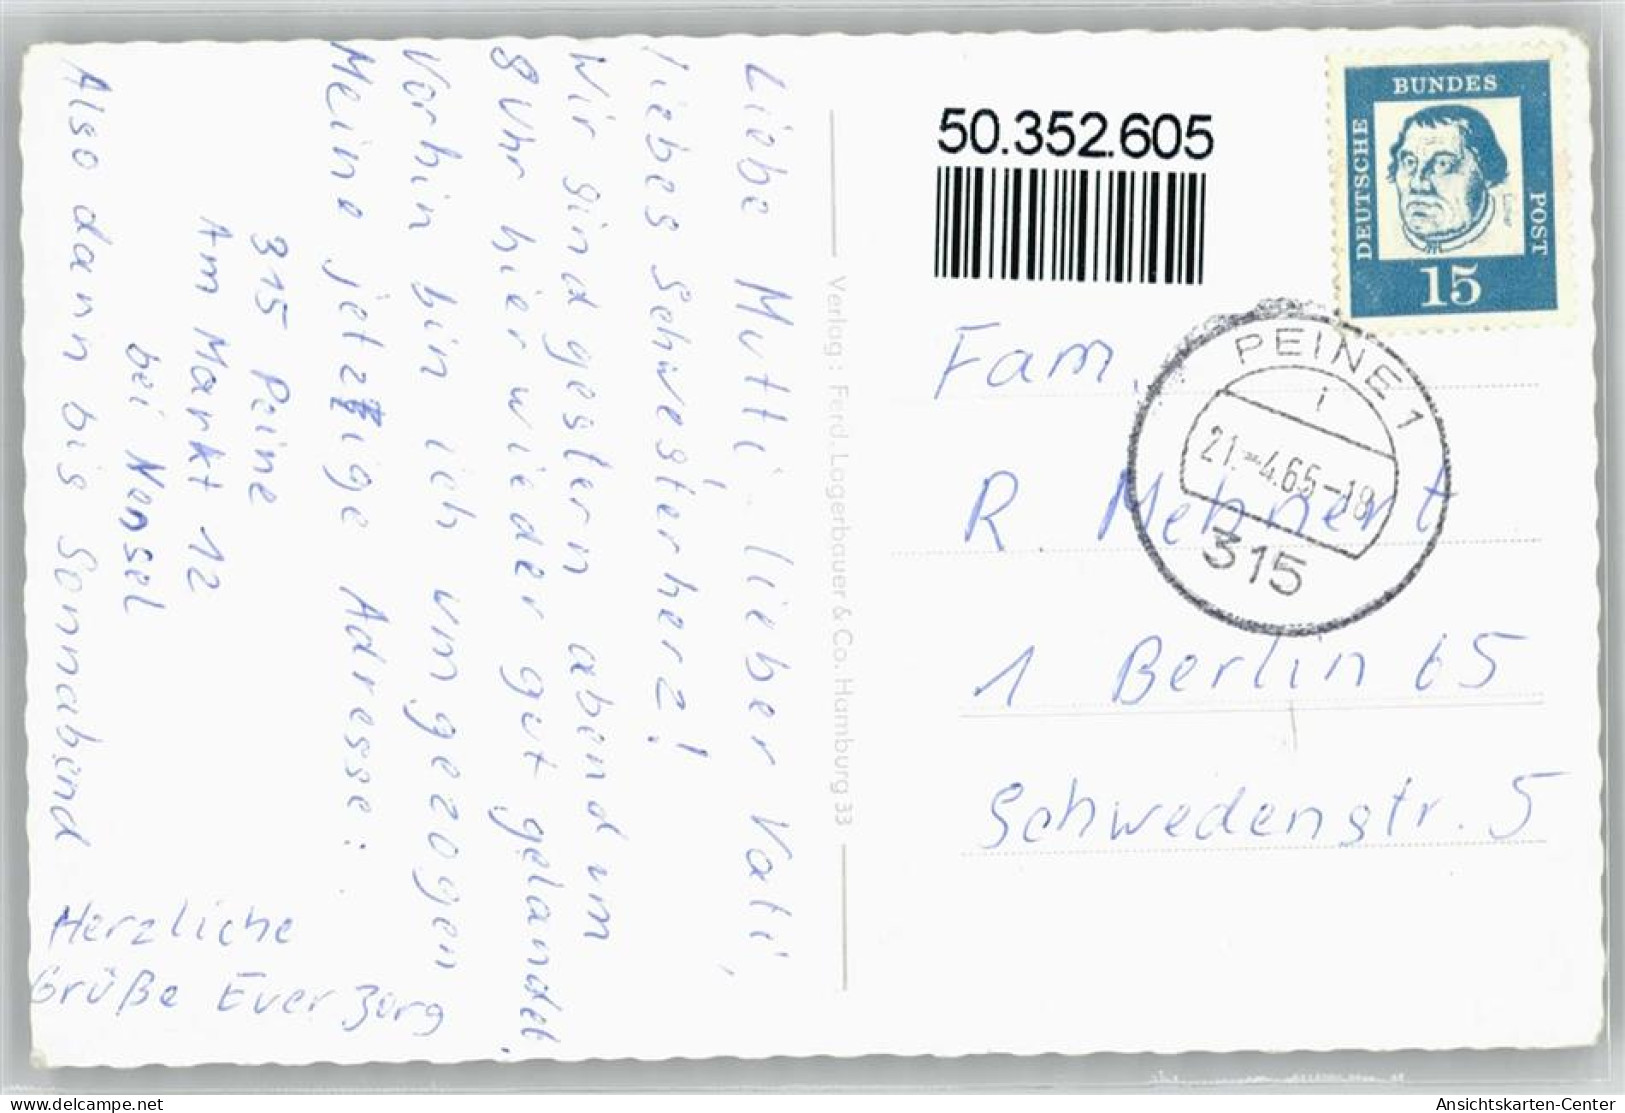 Liebe Mutti, lieber Vati,
liebes Schwesterherz!
Wir sind gestern abend um
8 Uhr hier wieder gut gelandet.
Vorhin bin ich umgezogen
Meine jetzige Adresse:
315 Peine
Am Markt 12
bei Nensel
Also dann bis Sonnabend
Herzliche
Grüße Euer
Verlag: Ferd. Lagerbauer & Co. Hamburg 33
50.352.605
DEUTSCHE
BUNDES
POST
Luther
15
PEINE 1
i
21.-4.65-18
315
Fam.
R Mehnert
1 Berlin 65
Schwedenstr. 5
delcampe.net
Ansichtskarten-Center